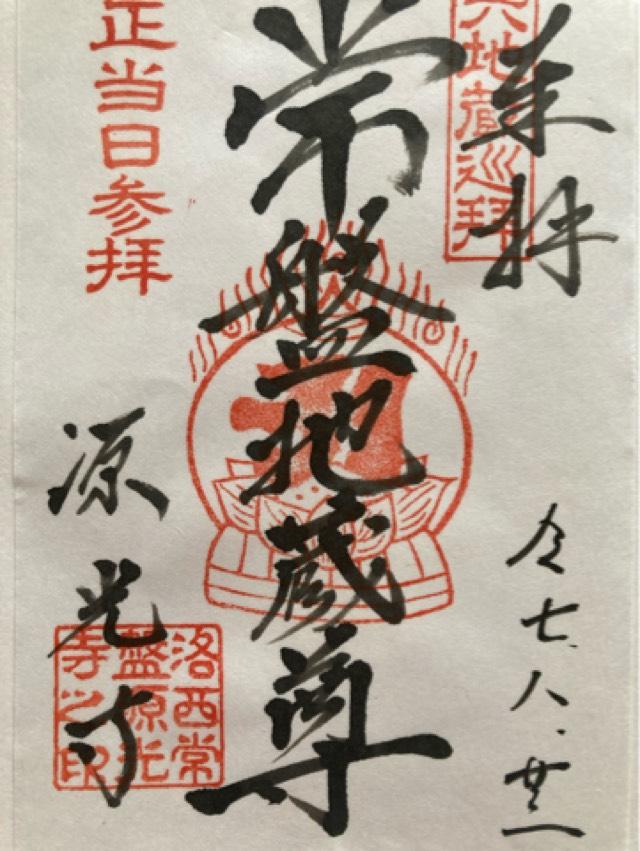 奉拝
六地蔵巡拝
令七、八、廿二
常盤地蔵尊
正当日参拝
源光寺
洛西常
盤源光
寺之印